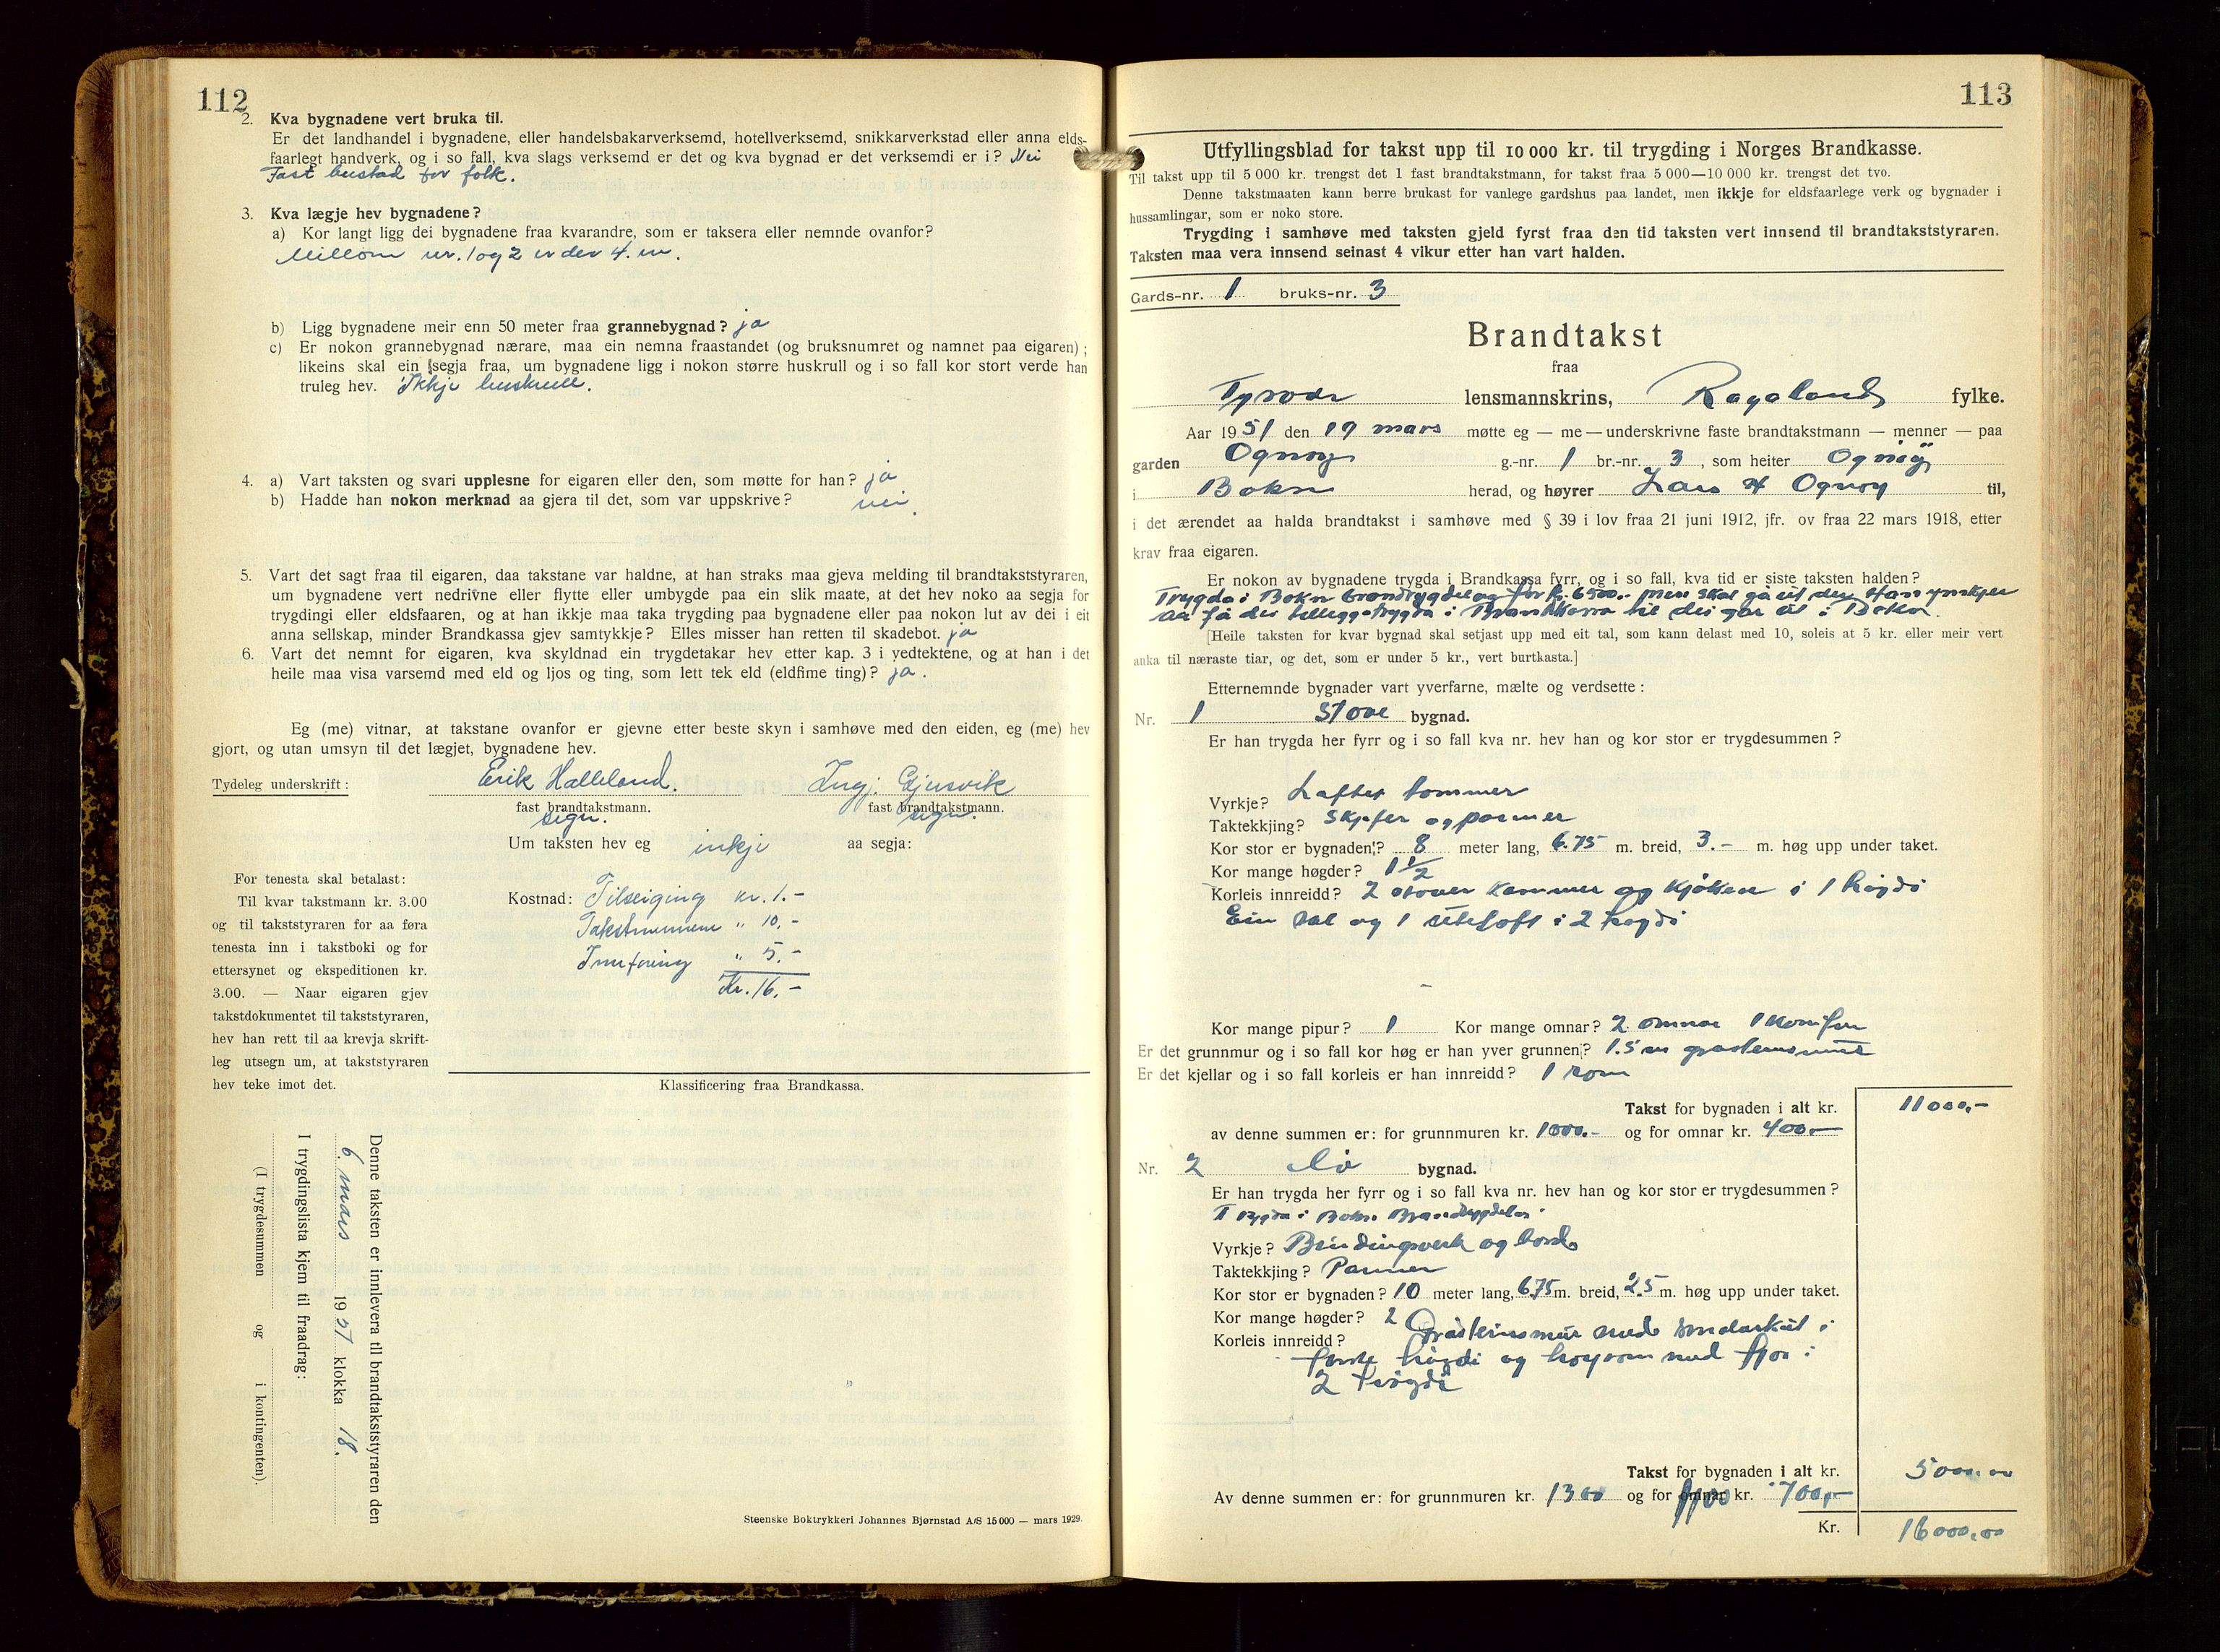 112
2. Kva bygnadene vert bruka til.
Er det landhandel i bygnadene, eller handelsbakarverksemd, hotellverksemd, snikkarverkstad eller anna elds-
faarlegt handverk, og i so fall, kva slags verksemd er det og kva bygnad er det verksemdi er i? Nei
Fast bustad for folk.
3. Kva lægje hev bygnadene?
a) Kor langt ligg dei bygnadene fraa kvarandre, som er taksera eller nemnde ovanfor?
Millom nr. 1 og 2 under 4. m.
b) Ligg bygnadene meir enn 50 meter fraa grannebygnad? ja
c) Er nokon grannebygnad nærare, maa ein nemna fraastandet (og bruksnumret og namnet paa eigaren);
likeins skal ein segja fraa, um bygnadene ligg i nokon større huskrull og i so fall kor stort verde han
truleg hev. Ikkje huskrull.
4. a) Vart taksten og svari upplesne for eigaren eller den, som møtte for han? ja
b) Hadde han nokon merknad aa gjera til det, som var uppskrive? nei.
5. Vart det sagt fraa til eigaren, daa takstane var haldne, at han straks maa gjeva melding til brandtakststyraren,
um bygnadene vert nedrivne eller flytte eller umbygde paa ein slik maate, at det hev noko aa segja for
trygdingi eller eldsfaaren, og at han ikkje maa taka trygding paa bygnadene eller paa nokon lut av dei i eit
anna sellskap, minder Brandkassa gjev samtykkje? Elles misser han retten til skadebot. ja
6. Vart det nemnt for eigaren, kva skyldnad ein trygdetakar hev etter kap. 3 i vedtektene, og at han i det
heile maa visa varsemd med eld og ljos og ting, som lett tek eld (eldfime ting)? ja.
Eg (me) vitnar, at takstane ovanfor er gjevne etter beste skyn i samhøve med den eiden, eg (me) hev
gjort, og utan umsyn til det lægjet, bygnadene hev.
Tydeleg underskrift: Erik Halleland. Ingj. Gjusvik
fast brandtakstmann. fast brandtakstmann.
sign. sign.
Um taksten hev eg inkje aa segja:
For tenesta skal betalast:
Til kvar takstmann kr. 3.00
og til takststyraren for aa føra
tenesta inn i takstboki og for
ettersynet og ekspeditionen kr.
3.00. — Naar eigaren gjev
takstdokumentet til takststyraren,
hev han rett til aa krevja skrift-
leg utsegn um, at takststyraren
hev teke imot det.
Kostnad: Tilseiging kr. 1.-
Takstmennene " 10.-
Innføring " 5.-
Kr. 16.-
Klassificering fraa Brandkassa.
Denne taksten er innlevera til brandtakststyraren den
6. mars 1951 klokka 18.
I trygdingslista kjem til fraadrag:
(I trygdesummen og i kontingenten).
Steenske Boktrykkeri Johannes Bjørnstad A/S 15000 — mars 1929.
113
Utfyllingsblad for takst upp til 10 000 kr. til trygding i Norges Brandkasse.
Til takst upp til 5 000 kr. trengst det 1 fast brandtakstmann, for takst fraa 5 000—10 000 kr. trengst det tvo.
Denne takstmaaten kann berre brukast for vanlege gardshus paa landet, men ikkje for eldsfaarlege verk og bygnader i
hussamlingar, som er noko store.
Trygding i samhøve med taksten gjeld fyrst fraa den tid taksten vert innsend til brandtakststyraren.
Taksten maa vera innsend seinast 4 vikur etter han vart halden.
Gards-nr. 1 bruks-nr. 3
Brandtakst
fraa
Tysvær lensmannskrins, Rogaland fylke.
Aar 1951 den 19 mars møtte eg — me — underskrivne faste brandtakstmann — menner — paa
garden Ognøy g.-nr. 1 br.-nr. 3, som heiter Ognøy
i Bokn herad, og høyrer Lars Ognøy til,
i det ærendet aa halda brandtakst i samhøve med § 39 i lov fraa 21 juni 1912, jfr. ov fraa 22 mars 1918, etter
krav fraa eigaren.
Er nokon av bygnadene trygda i Brandkassa fyrr, og i so fall, kva tid er siste taksten halden?
Trygda i Bokn brandtrygdelag for kr. 6500.- men skal gå ut der. Han ynskjer
aa få dei tilleggstrygda i Brandkassa til dei går ut i Bokn.
[Heile taksten for kvar bygnad skal setjast upp med eit tal, som kann delast med 10, soleis at 5 kr. eller meir vert
auka til næraste tiar, og det, som er under 5 kr., vert burtkasta.]
Etternemnde bygnader vart yverfarne, mælte og verdsette:
Nr. 1 Stove bygnad.
Er han trygda her fyrr og i so fall kva nr. hev han og kor stor er trygdesummen?
Vyrkje? Laftet tømmer
Taktekkjing? Skifer og panner
Kor stor er bygnaden? 8 meter lang, 6.75 m. breid, 3.- m. høg upp under taket.
Kor mange høgder? 1 1/2
Korleis innreidd? 2 stover kammer og kjøken i 1 høgdi
Ein sal og 1 uteloft i 2 høgdi
Kor mange pipur? 1 Kor mange omnar? 2 omnar 1 komfyr
Er det grunnmur og i so fall kor høg er han yver grunnen? 1.5 m gråsteinsmur
Er det kjellar og i so fall korleis er han innreidd? 1 rom
Takst for bygnaden i alt kr. 11000,-
av denne summen er: for grunnmuren kr. 1000.- og for omnar kr. 400,-
Nr. 2 Lø bygnad.
Er han trygda her fyrr og i so fall kva nr. hev han og kor stor er trygdesummen?
Trygda i Bokn Brandtrygdelag.
Vyrkje? Bindingsverk og bord
Taktekkjing? Panner
Kor stor er bygnaden? 10 meter lang, 6.75 m. breid, 2.5 m. høg upp under taket.
Kor mange høgder? 2
Korleis innreidd? Gråsteinsmur med i
fyrste høgdi og høyrom med fjos i
2 høgdi
Takst for bygnaden i alt kr. 5000.00
Av denne summen er: for grunnmuren kr. 1300 og for omnar kr. 700,-
Kr. 16000,00